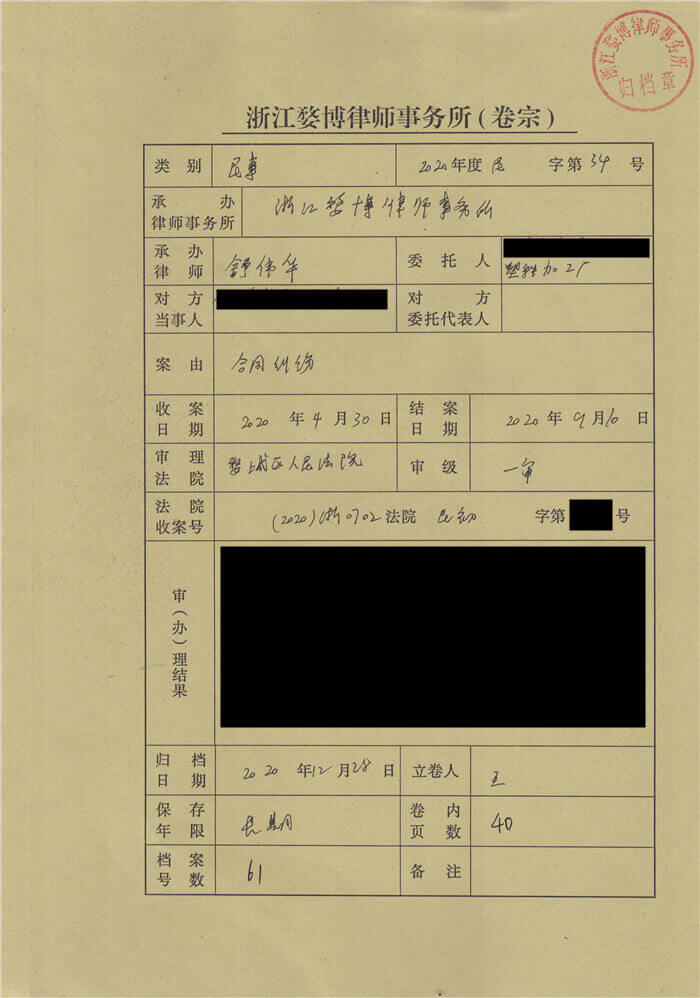 浙江婺博律师事务所
归档章
浙江婺博律师事务所(卷宗)
类别 民事 2020年度民 字第34号
承办律师事务所 浙江婺博律师事务所
承办律师 舒伟华 委托人 塑料加工厂
对方当事人 对方委托代表人
案由 合同纠纷
收案日期 2020年4月30日 结案日期 2020年9月10日
审理法院 婺城区人民法院 审级 一审
法院收案号 (2020)浙0702法院 民初 字第 号
审(办)理结果
归档日期 2020年12月28日 立卷人 王
保存年限 长期 卷内页数 40
档案号数 61 备注